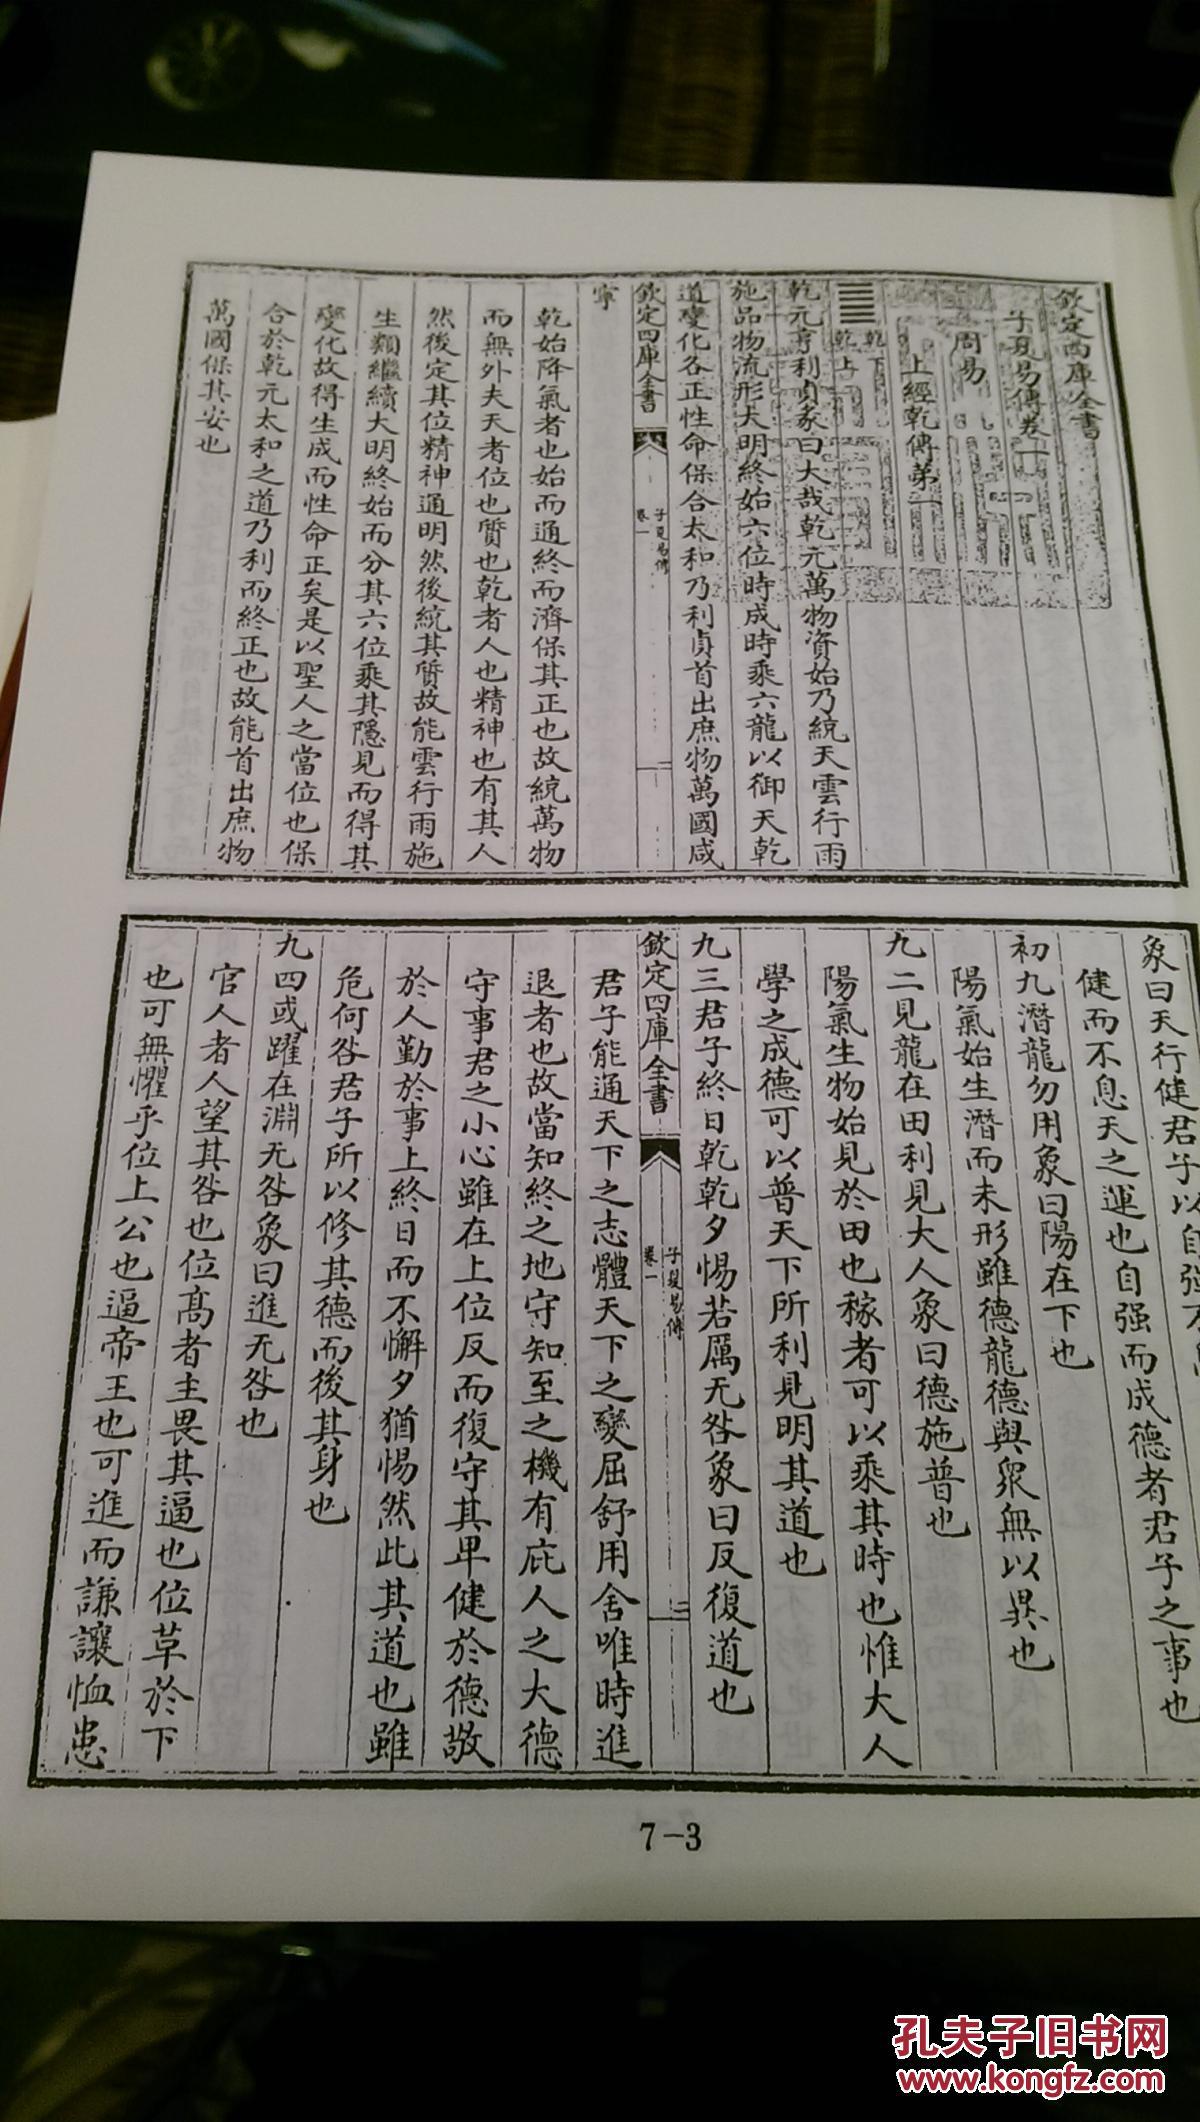 欽定四庫全書
子夏易傳卷一
周易
上經乾傳第一
乾下
乾上
乾元亨利貞彖曰大哉乾元萬物資始乃統天雲行雨
施品物流形大明終始六位時成時乘六龍以御天乾
道變化各正性命保合太和乃利貞首出庶物萬國咸
欽定四庫全書
子夏易傳
卷一
一
寧
乾始降氣者也始而通終而濟保其正也故統萬物
而無外夫天者位也質也乾者人也精神也有其人
然後定其位精神通明然後統其質故能雲行雨施
生類繼續大明終始而分其六位乘其隱見而得其
變化故得生成而性命正矣是以聖人之當位也保
合於乾元太和之道乃利而終正也故能首出庶物
萬國保其安也
象曰天行健君子以自强不
健而不息天之運也自强而成德者君子之事也
初九潛龍勿用象曰陽在下也
陽氣始生潛而未形雖德龍德與衆無以異也
九二見龍在田利見大人象曰德施普也
陽氣生物始見於田也稼者可以乘其時也惟大人
學之成德可以普天下所利見明其道也
九三君子終日乾乾夕惕若厲无咎象曰反復道也
欽定四庫全書
子夏易傳
卷一
二
君子能通天下之志體天下之變屈舒用舍唯時進
退者也故當知終之地守知至之機有庇人之大德
守事君之小心雖在上位反而復守其卑健於德敬
於人勤於事上終日而不懈夕猶惕然此其道也雖
危何咎君子所以修其德而後其身也
九四或躍在淵无咎象曰進无咎也
官人者人望其咎也位髙者主畏其逼也位革於下
也可無懼乎位上公也逼帝王也可進而謙讓恤患
7-3
孔夫子旧书网
www.kongfz.com